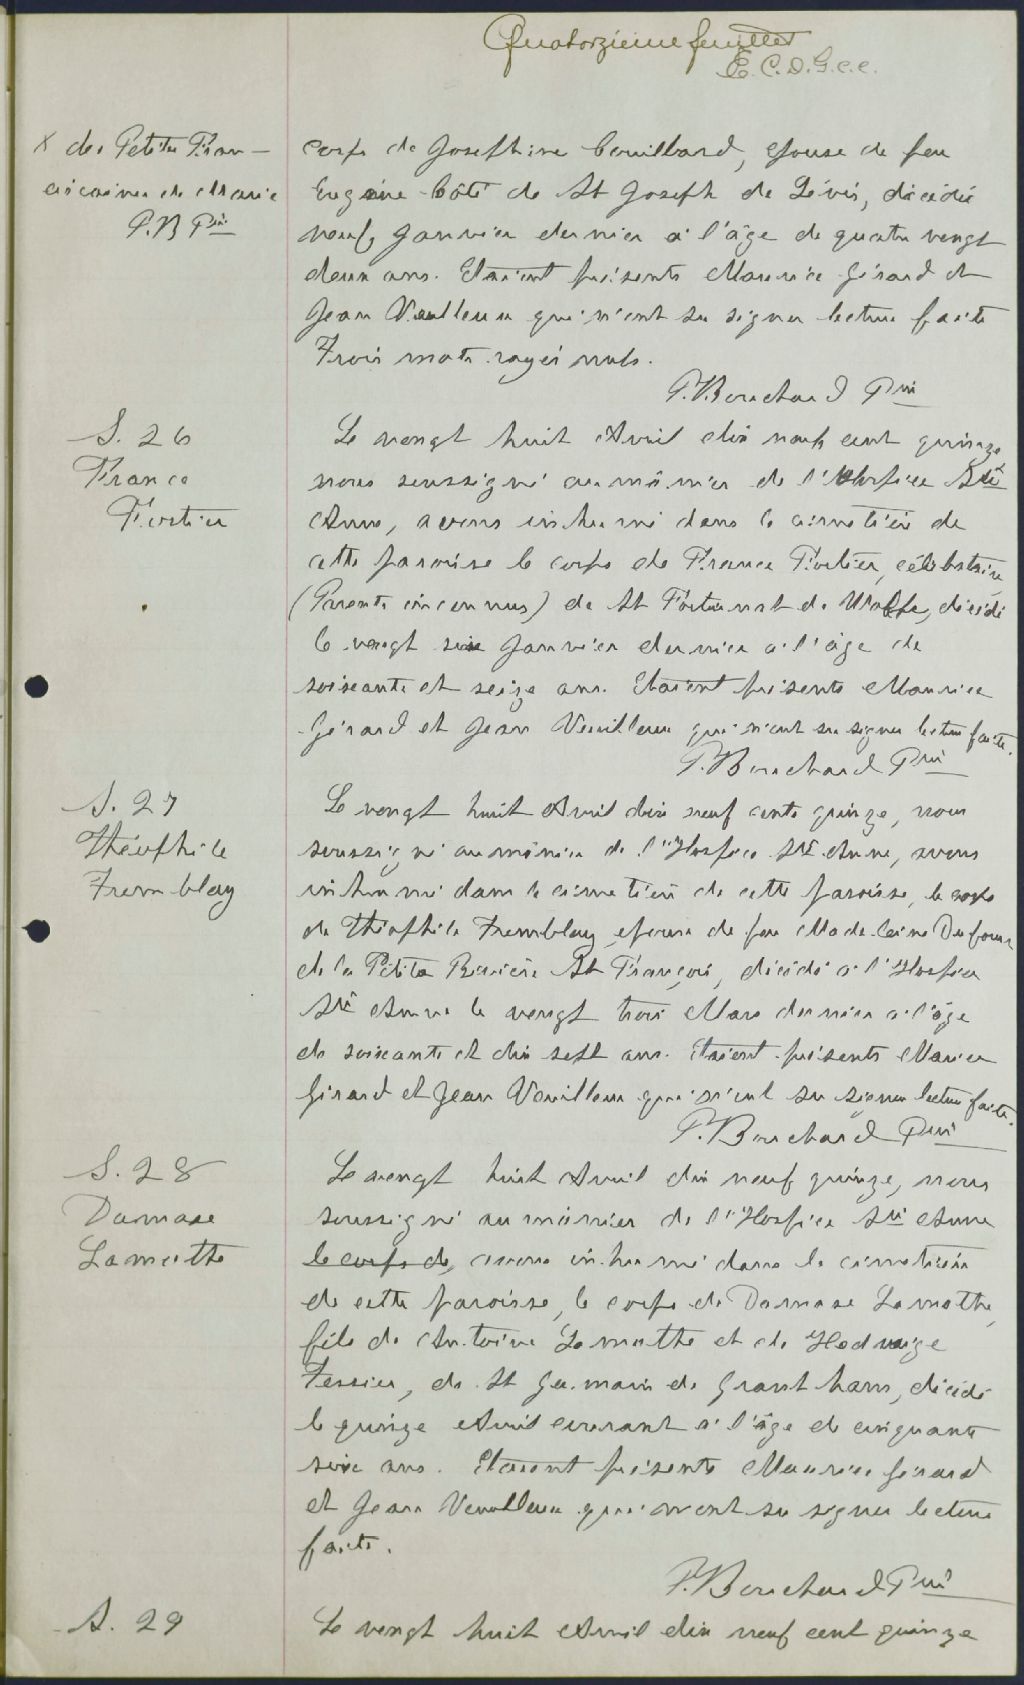 Quatorzieme feuillet
E.C.D.G.c.c.
x des Petites Fran-
ciscaines de Marie
P.B Ptre
corps de Josephine Couillard, epouse de feu
Eugène Côté de St Joseph de Lévis, décédée
neuf Janvier dernier à l'âge de quatre vingt
deux ans. Etaient présents Maurice Girard et
Jean Veuilleux qui n'ont su signer lecture faite
Trois mots rayés nuls.
P. Bouchard Ptre
S. 26
France
Fortier
Le vengt huit Avril dix neuf cent quinze
nous soussigné aumônier de l'Hospice Ste
Anne, avons inhumé dans le cimetière de
cette paroisse le corps de France Fortier, célibataire
(Parents inconnus) de St Fortunat de Wolfe, décédé
le vengt six Janvier dernier à l'âge de
soixante et seize ans. Etaient présents Maurice
Girard et Jean Veuilleux qui n'ont su signer lecture faite.
P. Bouchard Ptre
S. 27
Théophile
Tremblay
Le vengt huit Avril dix neuf cents quinze, nous
soussigné aumônier de l'Hospice Ste Anne, avons
inhumé dans le cimetière de cette paroisse, le corps
de Théophile Tremblay epoux de feu Madeleine Dufour
de la Petite Rivière St François, décédé à l'Hospice
Ste Anne le vengt trois Mars dernier à l'âge
de soixante et dix sept ans. Etaient présents Maurice
Girard et Jean Veuilleux qui n'ont su signer lecture faite.
P. Bouchard Ptre
S. 28
Damase
Lamothe
Le vengt huit Avril dix neuf quinze, nous
soussigné aumônier de l'Hospice Ste Anne
le corps de, avons inhumé dans le cimetière
de cette paroisse, le corps de Damase Lamothe,
fils de Antoine Lamothe et de Hedwige
Tessier, de St Germain de Grantham, décédé
le quinze Avril courant à l'âge de cinquante
six ans. Etaient présents Maurice Girard
et Jean Veuilleux qui n'ont su signer lecture
faite.
P. Bouchard Ptre
S. 29
Le vengt huit Avril dix neuf cent quinze